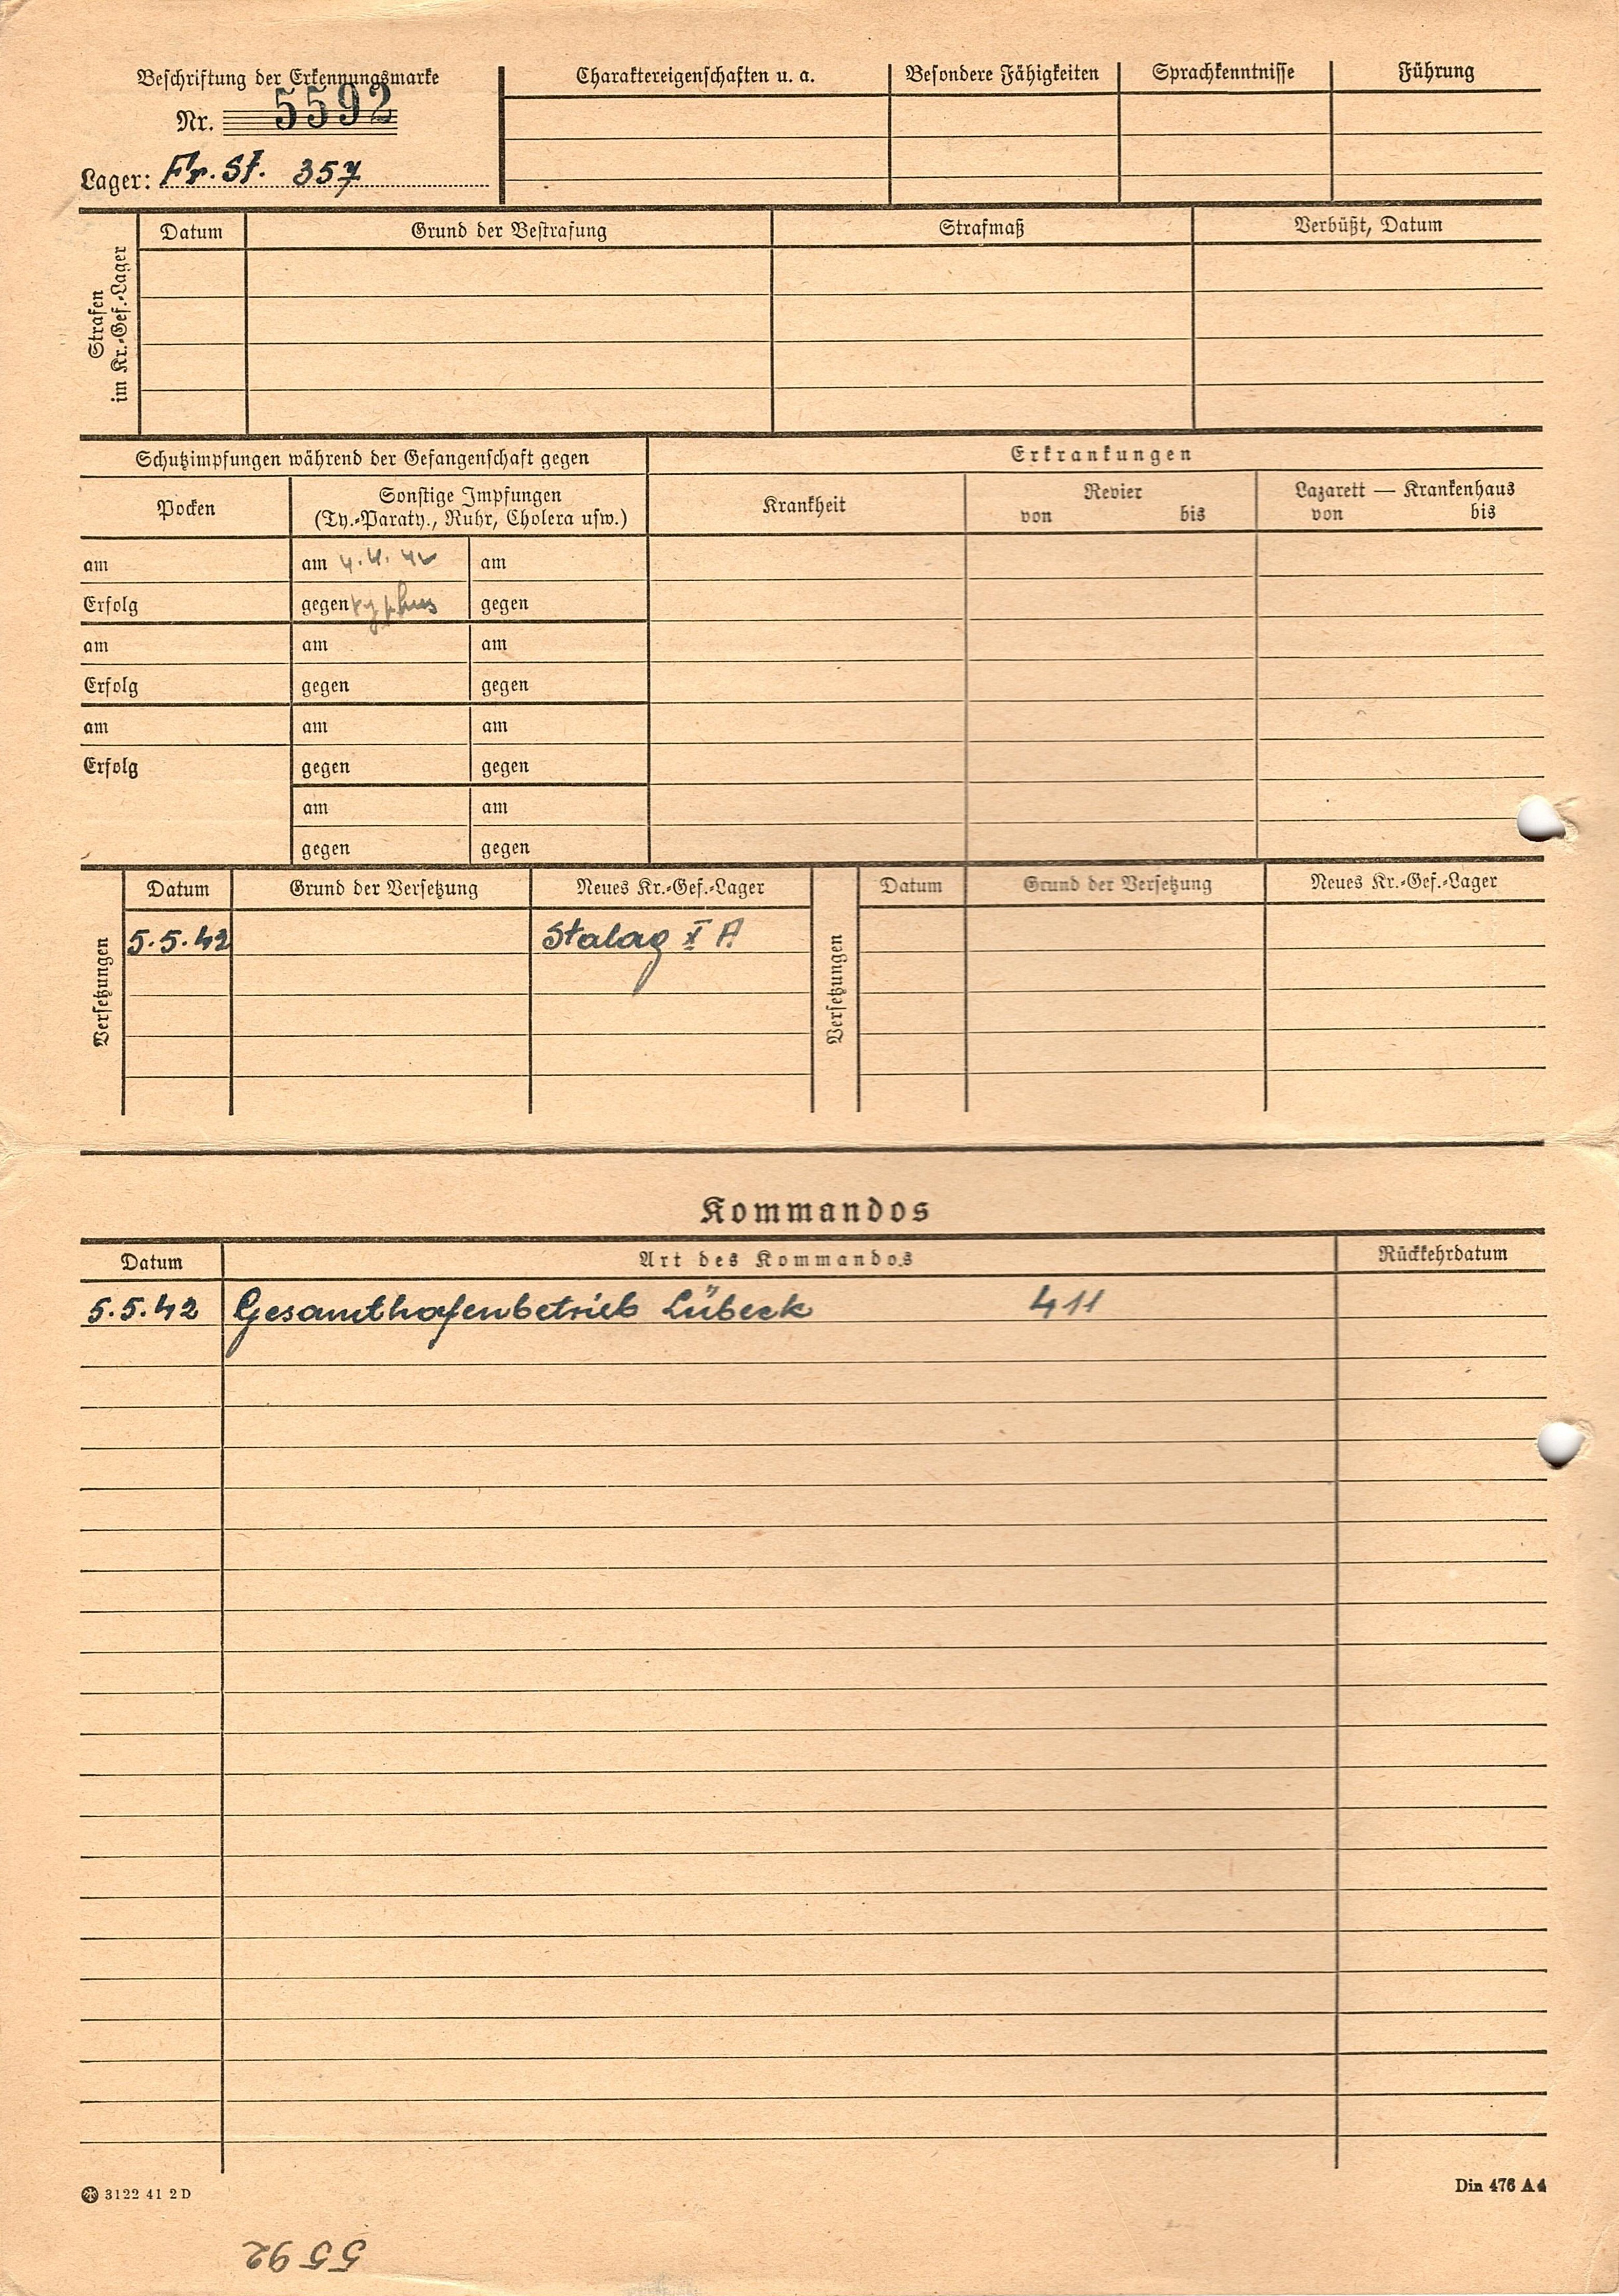 Beschriftung der Erkennungsmarke
Nr. 5592
Lager: Fr. St. 357
Charaktereigenschaften u. a.
Besondere Fähigkeiten
Sprachkenntnisse
Führung
Strafen
im Kr.-Gef.-Lager
Datum
Grund der Bestrafung
Strafmaß
Verbüßt, Datum
Schutzimpfungen während der Gefangenschaft gegen
Erkrankungen
Pocken
Sonstige Impfungen
(Ty.-Paraty., Ruhr, Cholera usw.)
Krankheit
Revier
von bis
Lazarett — Krankenhaus
von bis
am am 4.4.42 am
Erfolg gegen typhus gegen
am am am
Erfolg gegen gegen
am am am
Erfolg gegen gegen
am am
gegen gegen
Versetzungen
Datum Grund der Versetzung Neues Kr.-Gef.-Lager
5.5.42 Stalag X A
Versetzungen
Datum Grund der Versetzung Neues Kr.-Gef.-Lager
Kommandos
Datum Art des Kommandos Rückkehrdatum
5.5.42 Gesamthafenbetrieb Lübeck 411
3122 41 2 D
Din 476 A 4
5592